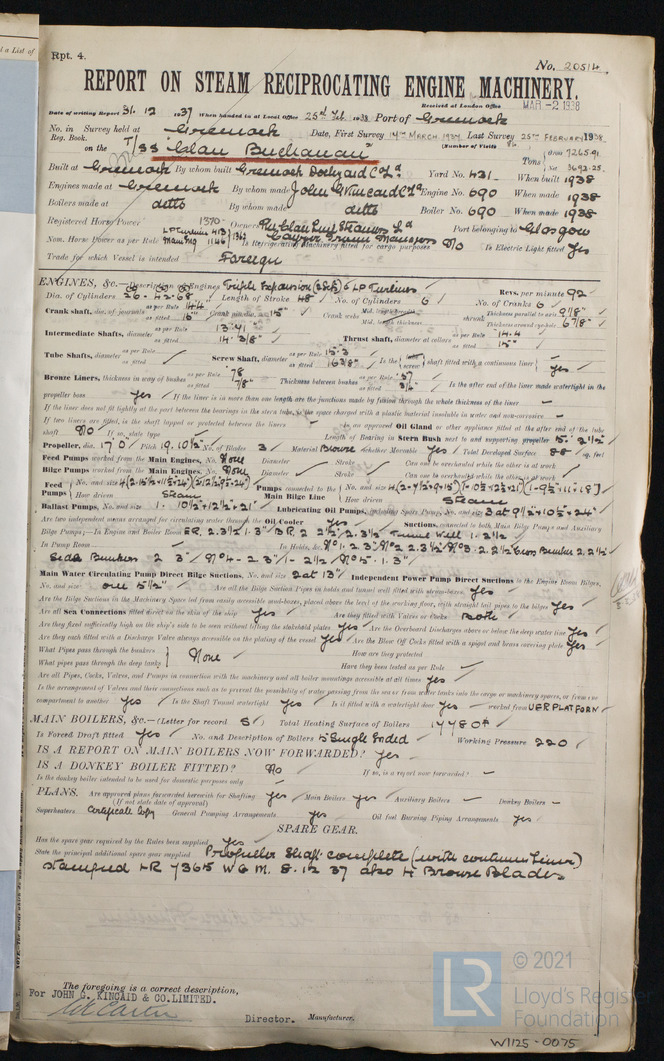 t a List of
Rpt. 4.
No. 20514
REPORT ON STEAM RECIPROCATING ENGINE MACHINERY.
Received at London Office MAR -2 1938
Date of writing Report 31. 12 1937 When handed in at Local Office 25th Feb. 1938 Port of Greenock
No. in Survey held at Greenock Date, First Survey 14TH MARCH 1937 Last Survey 25TH FEBRUARY 1938
Reg. Book. (Number of Visits 86)
on the T/SS "Clan Buchanan" Tons Gross 7265.91 Net 3692.25
Built at Greenock By whom built Greenock Dockyard Co Ld Yard No. 431 When built 1938
Engines made at Greenock By whom made John G Kincaid & Co Ld Engine No. 690 When made 1938
Boilers made at ditto By whom made ditto Boiler No. 690 When made 1938
Registered Horse Power 1370 Owners Port belonging to Glasgow
Nom. Horse Power as per Rule Is Refrigerating Machinery fitted for cargo purposes No Is Electric Light fitted Yes
Trade for which Vessel is intended Foreign
ENGINES, &c.—Description of Engines Triple Expansion (2 Sets) & LP Turbines Revs. per minute 92
Dia. of Cylinders 26-42-68 Length of Stroke 48" No. of Cylinders 6 No. of Cranks 6
Crank shaft, dia. of journals as per Rule 14.4 as fitted 15" Crank pin dia. 15" Crank webs Mid. length breadth Mid. length thickness shrunk Thickness parallel to axis 9 1/8" Thickness around eye-hole 6 7/8"
Intermediate Shafts, diameter as per Rule 13.71 as fitted 14.3/8" Thrust shaft, diameter at collars as per Rule 14.4 as fitted 15"
Tube Shafts, diameter as per Rule as fitted Screw Shaft, diameter as per Rule 15.3 as fitted 16 3/8" Is the screw shaft fitted with a continuous liner Yes
Bronze Liners, thickness in way of bushes as per Rule .78 as fitted 7/8" Thickness between bushes as per Rule .57 as fitted Is the after end of the liner made watertight in the
propeller boss Yes If the liner is in more than one length are the junctions made by fusion through the whole thickness of the liner -
If the liner does not fit tightly at the part between the bearings in the stern tube, is the space charged with a plastic material insoluble in water and non-corrosive -
If two liners are fitted, is the shaft lapped or protected between the liners - Is an approved Oil Gland or other appliance fitted at the after end of the tube
shaft No If so, state type Length of Bearing in Stern Bush next to and supporting propeller 5' 2 1/2"
Propeller, dia. 17'0" Pitch 19.10 1/2" No. of Blades 3 Material Bronze whether Moveable Yes Total Developed Surface 88 sq. feet
Feed Pumps worked from the Main Engines, No. None Diameter Stroke Can one be overhauled while the other is at work
Bilge Pumps worked from the Main Engines, No. None Diameter Stroke Can one be overhauled while the other is at work
Feed Pumps No. and size How driven Steam Pumps connected to the Main Bilge Line No. and size How driven Steam
Ballast Pumps, No. and size 1. 10 1/2 x 12 1/2 x 21" Lubricating Oil Pumps, including Spare Pump, No. and size 3 at 9 1/2 x 10 1/2 x 24"
Are two independent means arranged for circulating water through the Oil Cooler Yes Suctions, connected to both Main Bilge Pumps and Auxiliary
Bilge Pumps;—In Engine and Boiler Room
In Pump Room In Holds, &c.
Main Water Circulating Pump Direct Bilge Suctions, No. and size 2 at 13" Independent Power Pump Direct Suctions to the Engine Room Bilges,
No. and size one 5 1/2" Are all the Bilge Suction Pipes in holds and tunnel well fitted with strum-boxes Yes
Are the Bilge Suctions in the Machinery Space led from easily accessible mud-boxes, placed above the level of the working floor, with straight tail pipes to the bilges Yes
Are all Sea Connections fitted direct on the skin of the ship Yes Are they fitted with Valves or Cocks Both
Are they fixed sufficiently high on the ship's side to be seen without lifting the stokehold plates Yes Are the Overboard Discharges above or below the deep water line Yes
Are they each fitted with a Discharge Valve always accessible on the plating of the vessel Yes Are the Blow Off Cocks fitted with a spigot and brass covering plate Yes
What Pipes pass through the bunkers How are they protected
What pipes pass through the deep tanks None Have they been tested as per Rule
Are all Pipes, Cocks, Valves, and Pumps in connection with the machinery and all boiler mountings accessible at all times Yes
Is the arrangement of Valves and their connections such as to prevent the possibility of water passing from the sea or from water tanks into the cargo or machinery spaces, or from one
compartment to another Yes Is the Shaft Tunnel watertight Yes Is it fitted with a watertight door Yes worked from UER PLATFORM
MAIN BOILERS, &c.—(Letter for record S) Total Heating Surface of Boilers 17780#
Is Forced Draft fitted Yes No. and Description of Boilers 5 Single Ended Working Pressure 220
IS A REPORT ON MAIN BOILERS NOW FORWARDED? Yes
IS A DONKEY BOILER FITTED? No If so, is a report now forwarded? -
Is the donkey boiler intended to be used for domestic purposes only -
PLANS. Are approved plans forwarded herewith for Shafting Yes Main Boilers Yes Auxiliary Boilers - Donkey Boilers -
(If not state date of approval)
Superheaters Certificate Copy General Pumping Arrangements Yes Oil fuel Burning Piping Arrangements Yes
SPARE GEAR.
Has the spare gear required by the Rules been supplied Yes
State the principal additional spare gear supplied Propeller Shaft complete (with continuous liner)
stamped LR 7365 W G M. 8.12 37 also 4 Bronze Blades
The foregoing is a correct description,
For JOHN G. KINCAID & CO. LIMITED.
Director. Manufacturer.
LR
© 2021
Lloyd's Register
Foundation
W1125-0075